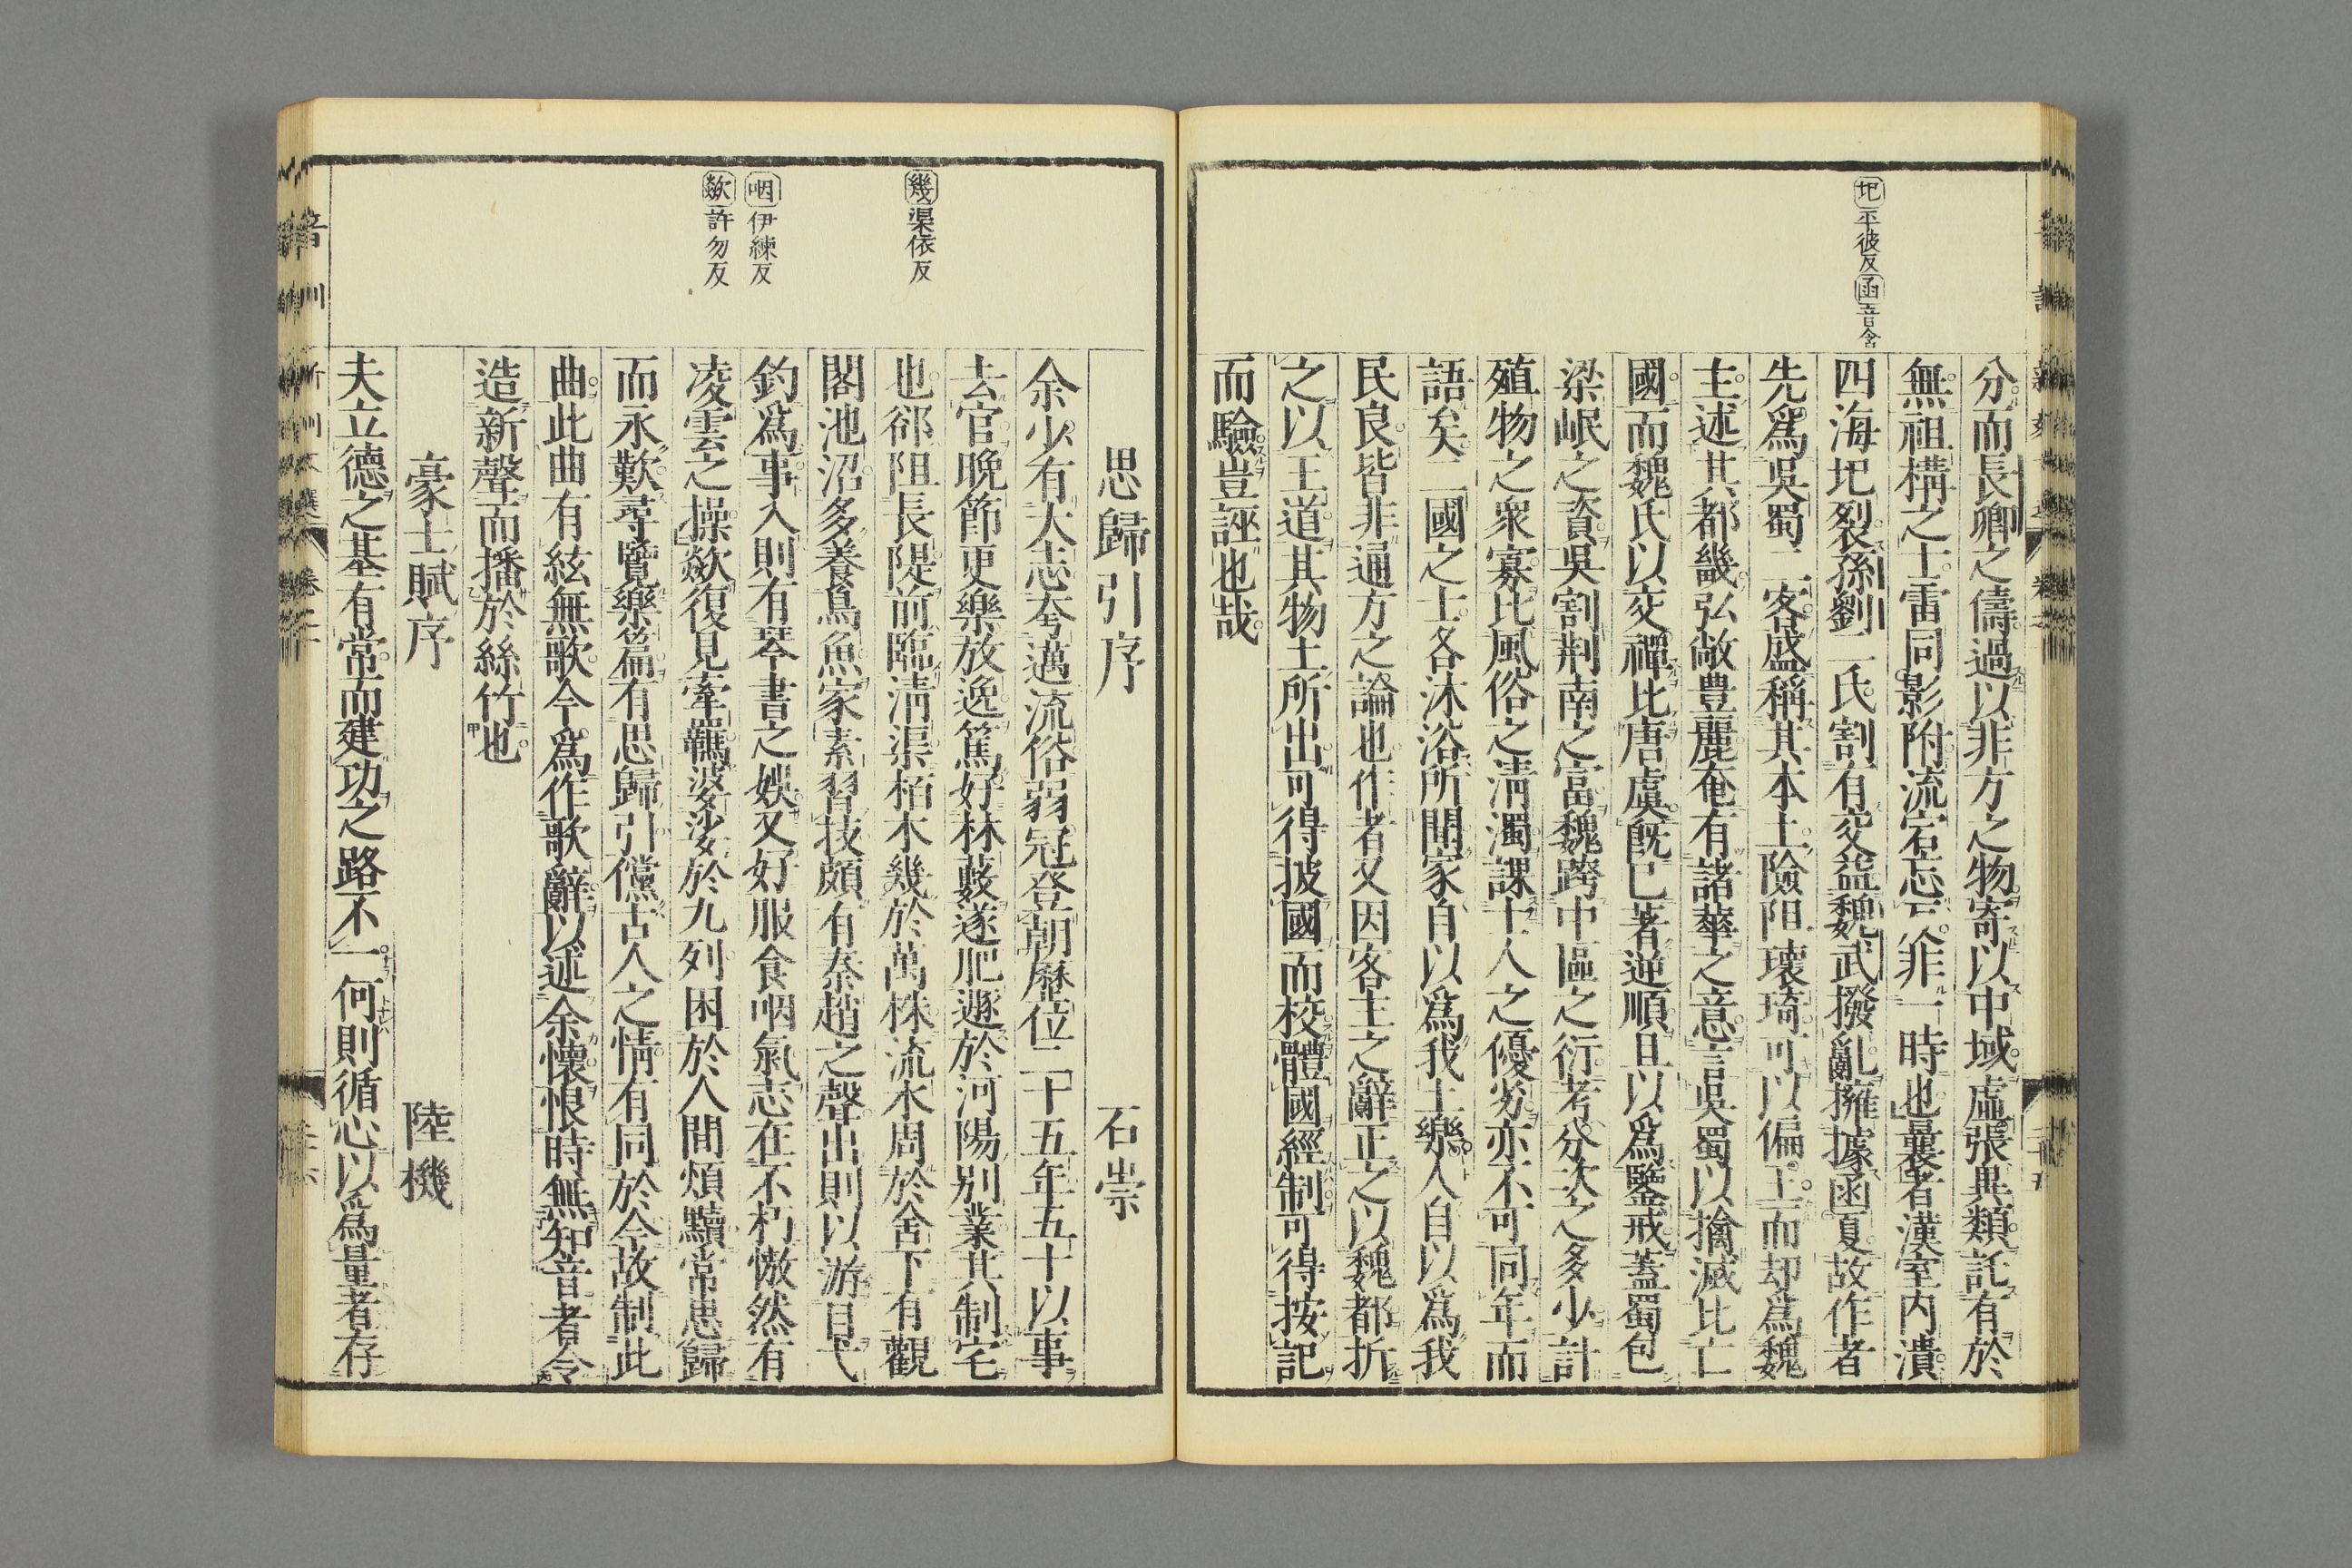 圯平彼反函音含
分而長卿之儔過以非方之物寄以中域虛張異類託有於
無祖構之士雷同影附流宕忘反非一時也曩者漢室內潰
四海圯裂孫劉二氏割有交益魏武撥亂擁據函夏故作者
先爲吳蜀二客盛稱其本土險阻瓌琦可以偏王而却爲魏
主述其都畿弘敞豊麗奄有諸華之意言吳蜀以擒滅比亡
國而魏氏以交禪比唐虞旣已著逆順且以爲鑒戒蓋蜀包
梁岷之資吳割荆南之富魏跨中區之衍考分次之多少計
殖物之衆寡比風俗之淸濁課士人之優劣亦不可同年而
語矣二國之士各沐浴所聞家自以爲我土樂人自以爲我
民良皆非通方之論也作者又因客主之辭正之以魏都折
之以王道其物土所出可得披國而校體國經制可得按記
而驗豈誣也哉
幾渠依反
咽伊練反
欻許勿反
思歸引序 石崇
余少有大志夸邁流俗弱冠登朝歷位二十五年五十以事
去官晚節更樂放逸篤好林藪遂肥遯於河陽別業其制宅
也郤阻長隄前臨淸渠栢木幾於萬株流水周於舍下有觀
閣池沼多養鳥魚家素習技頗有秦趙之聲出則以游目弋
釣爲事入則有琴書之娛又好服食咽氣志在不朽慠然有
凌雲之操欻復見牽羈婆娑於九列困於人間煩黷常思歸
而永歎尋覽樂篇有思歸引儻古人之情有同於今故制此
曲此曲有絃無歌今爲作歌辭以述余懷恨時無知音者令
造新聲而播於絲竹也
豪士賦序 陸機
夫立德之基有常而建功之路不一何則循心以爲量者存